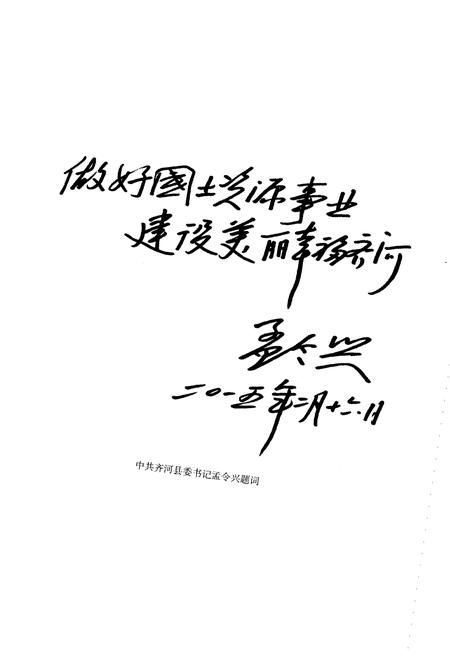 做好國土资源事业
建设美丽幸福齐河
孟令兴
二〇一五年二月十六日
中共齐河县委书记孟令兴题词